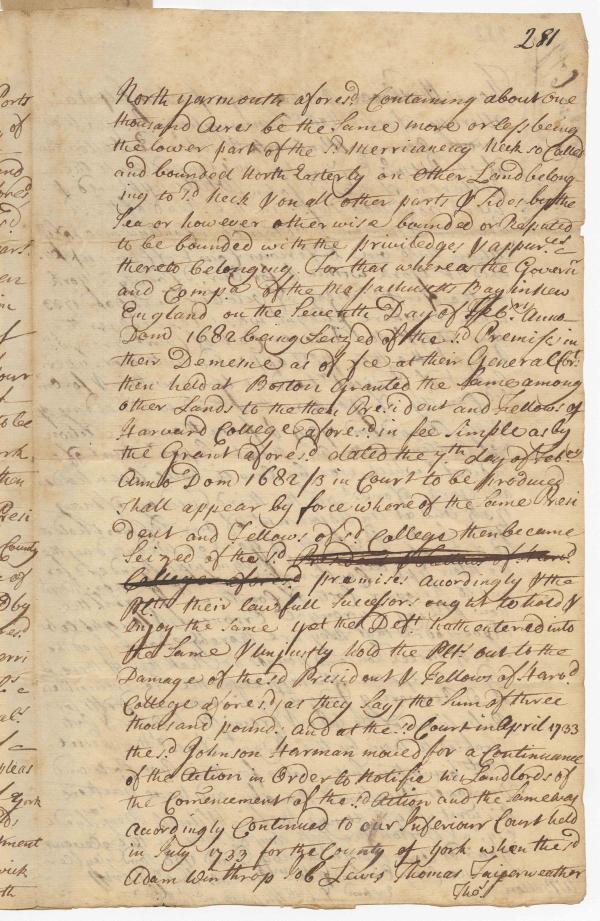 281
North yarmouth afores.d Containing about one
thousand Acres be the Same more or less being
the lower part of the s.d Merriconeag Neck so Called
and bounded North Easterly on other Land belong-
ing to s.d Neck & on all other parts & Sides by the
Sea or however otherwise bounded or Reputed
to be bounded with the priviledges & appur.ces
thereto belonging For that whereas the Govern.r
and Comp.a of the Massachusetts Bay in New
England on the Seventh Day of Feb.ry Anno
Dom 1682 being Seized of the s.d Premises in
their Demesne as of fee at their General Co.rt
then held at Boston Granted the Same among
other Lands to the then President and Fellows of
Harvard College afores.d in fee Simple as by
the Grant afores.d dated the 7th day of Feb.ry
Anno Dom 1682/3 in Court to be produced
Shall appear by force whereof the Same Presi
dent and Fellows of s.d College then became
Seized of the s.d President & Fellows of Harv.d
College afores.d premises Acordingly & the
Pl.ts their lawfull Successors ought to hold &
enjoy the Same yet the Def.t hath entered into
the Same & unjustly hold the Pl.ts out to the
Damage of the s.d President & Fellows of Harv.d
College afores.d as they Say the Sum of three
thousand pound. And at the s.d Court in April 1733
the s.d Johnson Harman moved for a Continuance
of the Action in Order to Notifie his Landlords of
the Comencement of the s.d Action and the Same was
Acordingly Continued to our Inferiour Court held
in July 1733 for the County of York when the s.d
Adam Winthrop Job Lewis Thomas Fairweather
Tho.s